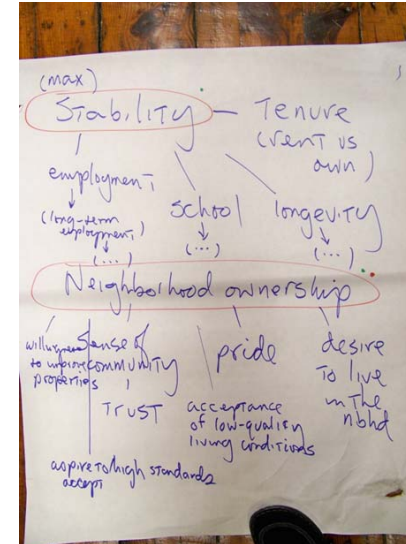 (max)
Stability - Tenure
(rent vs
own)
employment
(long-term
employment)
(...)
school
(...)
longevity
(...)
Neighborhood ownership
willingness
to improve
properties
sense of
community
Trust
pride
acceptance
of low-quality
living conditions
desire
to live
in the
nbhd
aspire to high standards
accept